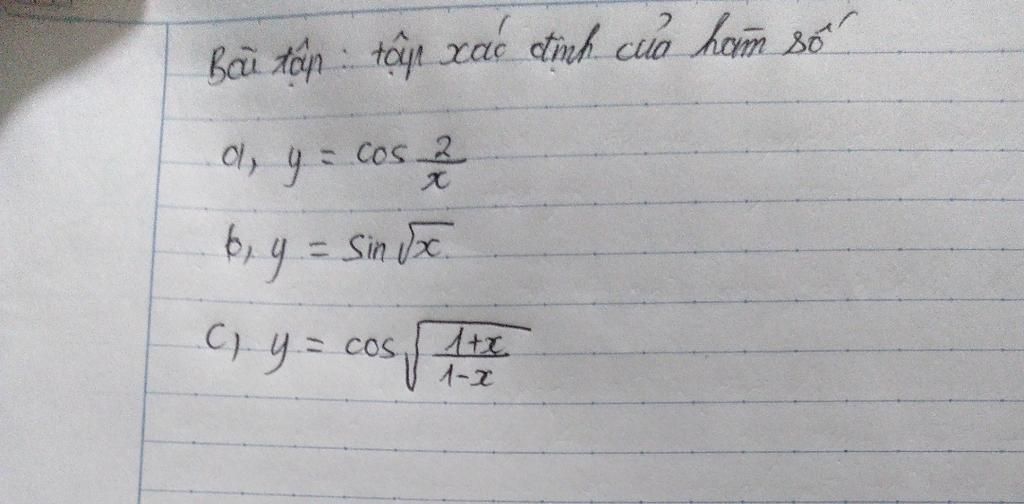 Bài tập : tập xác định của hàm số
a, y = cos 2/x
b, y = sin √x
c, y = cos √((1+x)/(1-x))